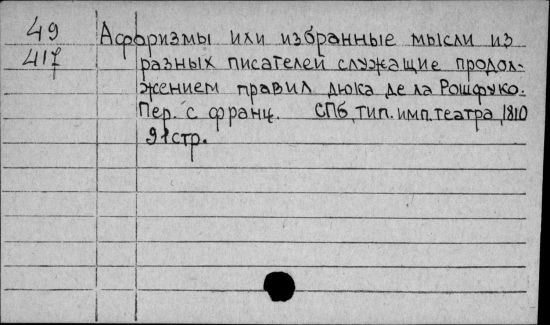 49 Афоризмы или избранные мысли из
417 разных писателей служащие продол-
жением правил дюка де ла Рошфуко.
Пер. с франц. СПб, тип. имп. театра, 1810
91стр.